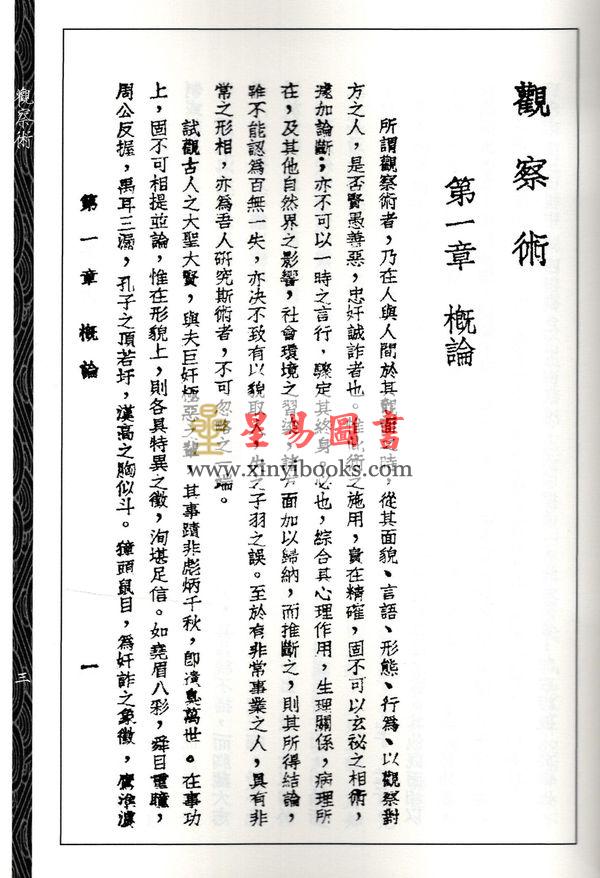 觀察術
第一章 概論
所謂觀察術者，乃在人與人間於其覿面之時，從其面貌、言語、形態、行為、以觀察對
方之人，是否賢愚善惡，忠奸誠詐者也。惟此術之施用，貴在精確，固不可以玄祕之相術，
遽加論斷；亦不可以一時之言行，驟定其終身。必也，綜合其心理作用，生理關係，病理所
在，及其他自然界之影響，社會環境之習染，諸方面加以歸納，而推斷之，則其所得結論，
雖不能認為百無一失，亦決不致有以貌取人，失之子羽之誤。至於有非常事業之人，具有非
常之形相，亦為吾人研究斯術者，不可忽略之一端。
試觀古人之大聖大賢，與夫巨奸極惡之輩，其事蹟非彪炳千秋，卽遺臭萬世。在事功
上，固不可相提並論，惟在形貌上，則各具特異之徵，洵堪足信。如堯眉八彩，舜目重瞳，
周公反握，禹耳三漏，孔子之頂若圩，漢高之胸似斗。獐頭鼠目，為奸詐之象徵，鷹準
第一章 概論
一
觀察術
三
星易圖書
www.xinyibooks.com